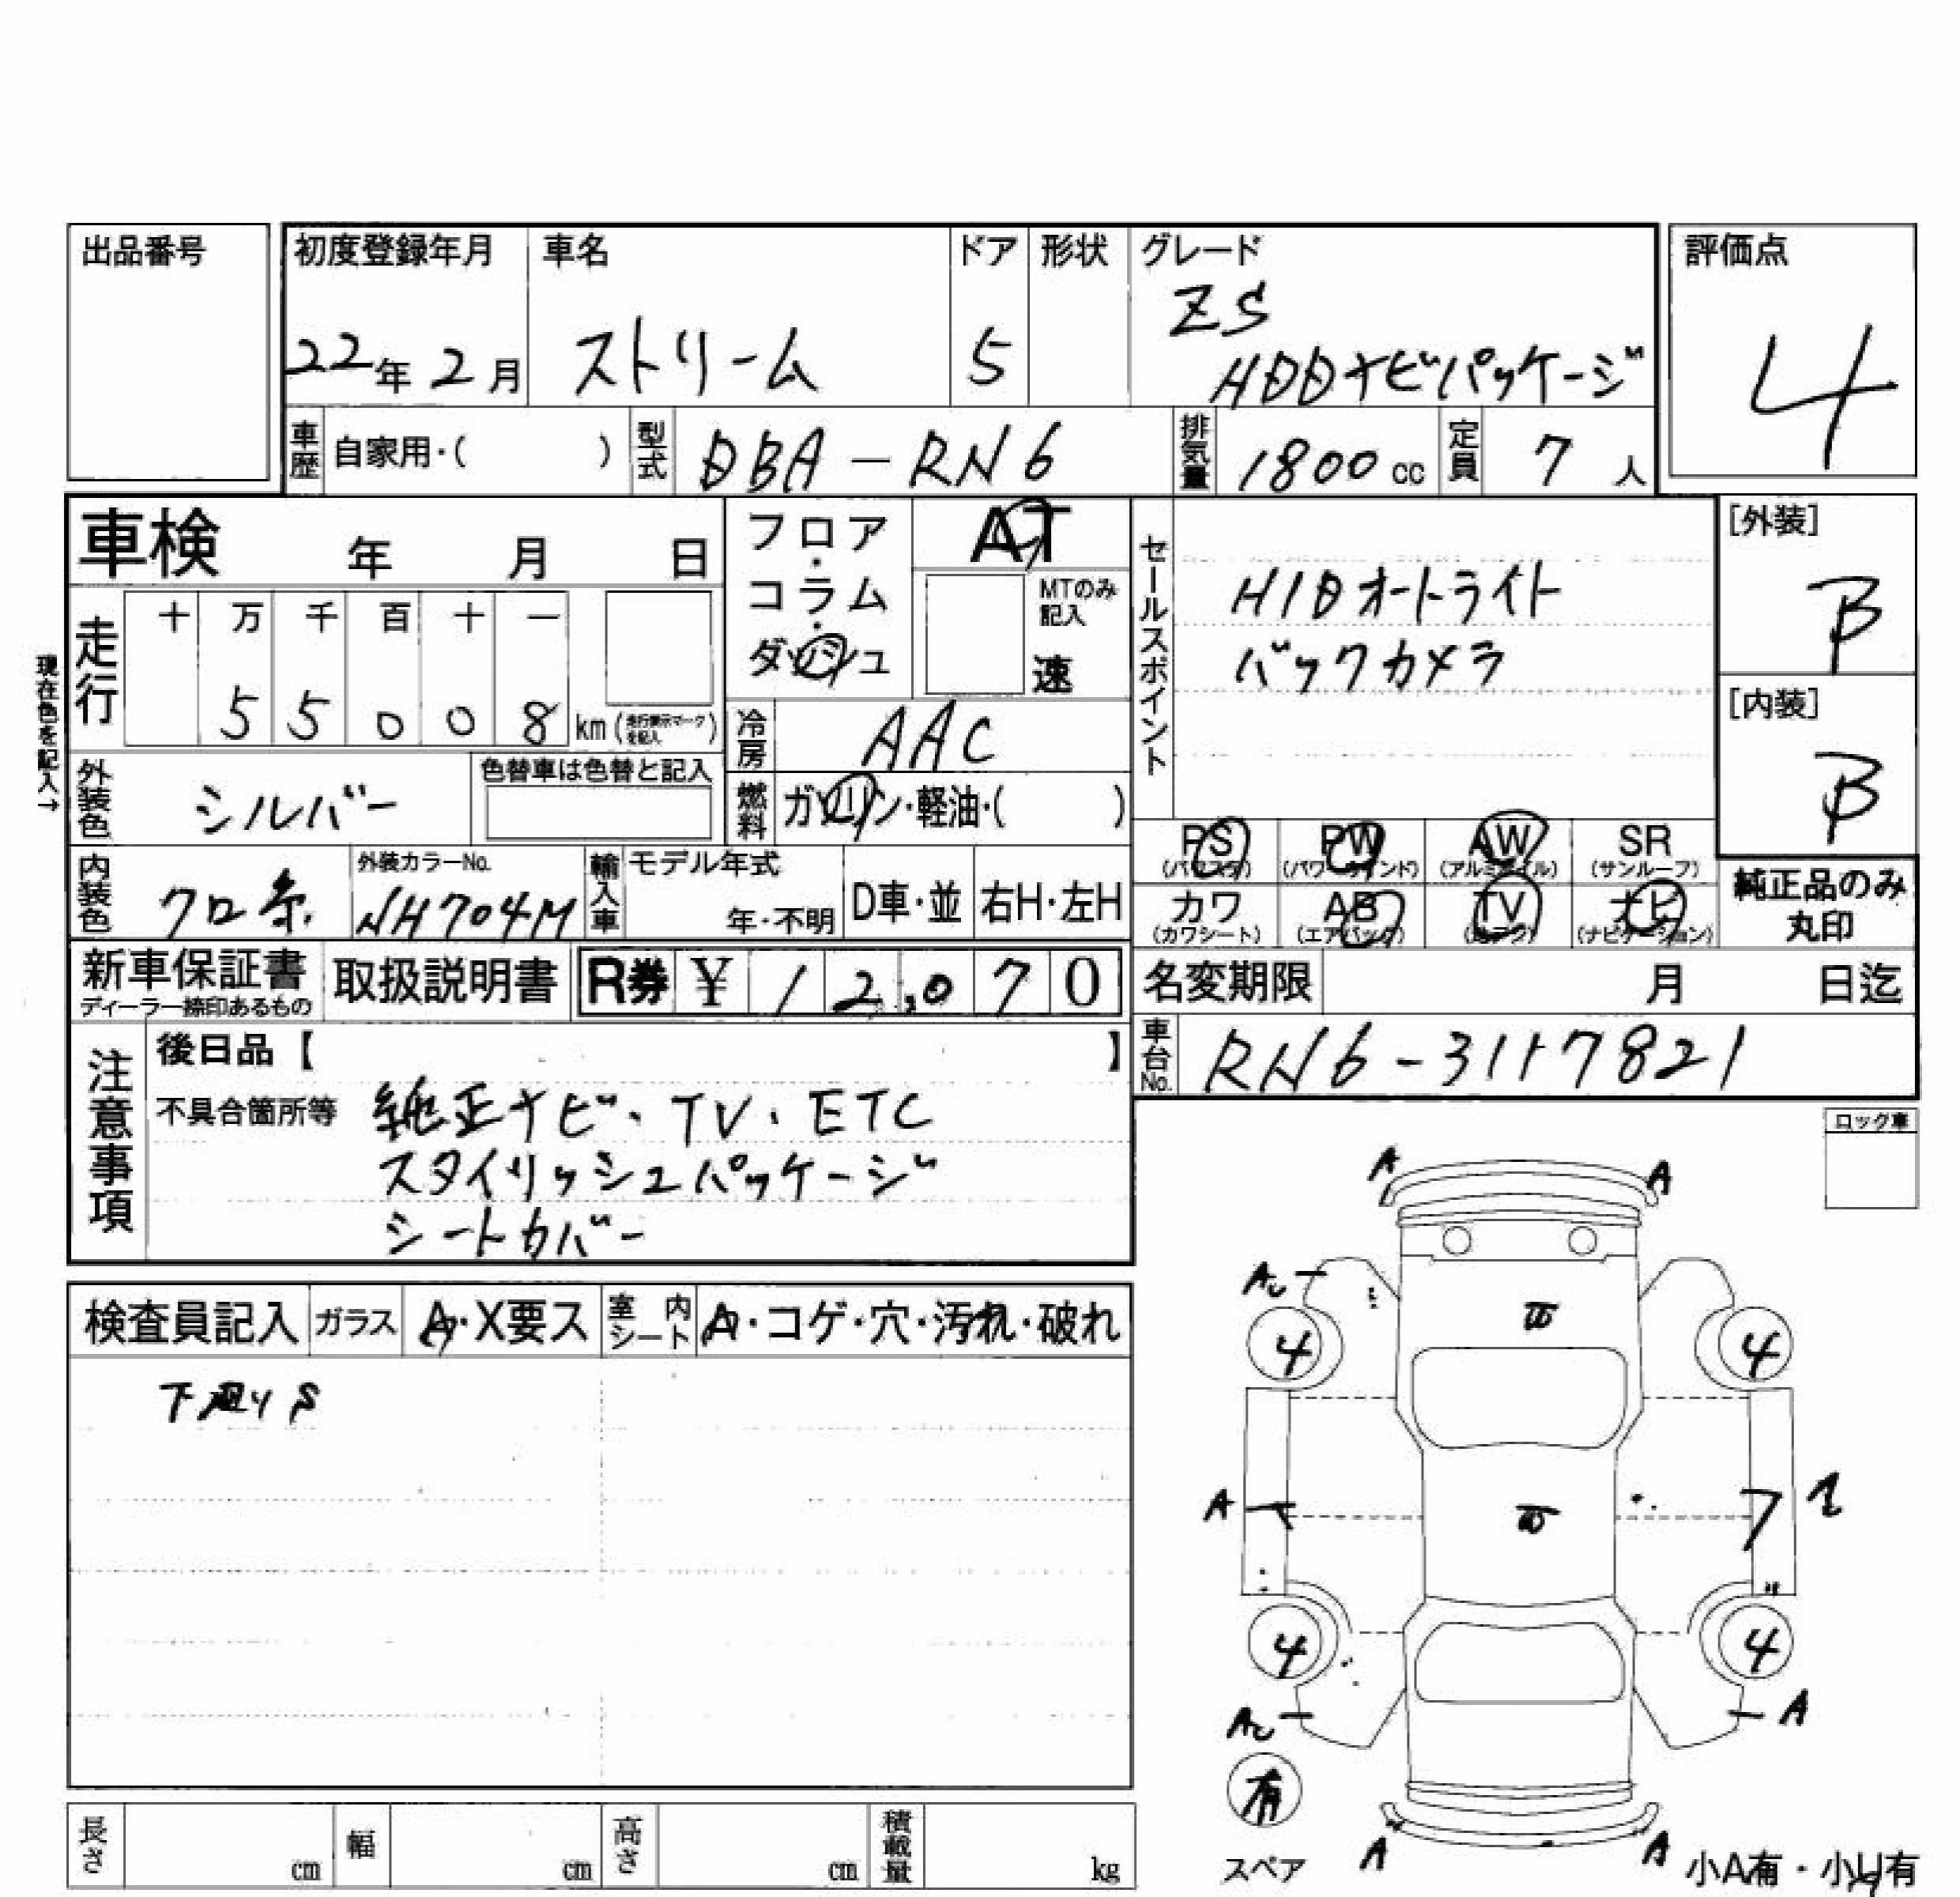 出品番号
初度登録年月 車名 ドア 形状 グレード 評価点
ZS
22年 2月 ストリーム 5 HDDナビパッケージ 4
車歴 自家用・( ) 型式 DBA-RN6 排気量 1800 cc 定員 7 人
車検 年 月 日
フロア・コラム・ダッシュ
AT
MTのみ記入
速
セールスポイント
HIDオートライト
バックカメラ
[外装]
B
[内装]
B
現在色を記入→
走行 十 万 千 百 十 一
5 5 0 0 8 km (走行表示マークを記入)
冷房 AAC
外装色 シルバー 色替車は色替と記入
燃料 ガソリン・軽油・( )
PS PW AW SR
(パワステ) (パワーウインド) (アルミホイル) (サンルーフ)
カワ AB TV ナビ
(カワシート) (エアバック) (ナビゲーション)
純正品のみ
丸印
内装色 クロ系 外装カラーNo. NH704M 輸入車 モデル年式 年・不明 D車・並 右H・左H
新車保証書 取扱説明書 R券 ¥ 12,070
ディーラー捺印あるもの
名変期限 月 日迄
車台No. RN6-3117821
注意事項
後日品【 】
不具合箇所等 純正ナビ・TV・ETC
スタイリッシュパッケージ
シートカバー
ロック車
検査員記入 ガラス A・X要ス 室内シート A・コゲ・穴・汚れ・破れ
下廻りS
A A
A
4 4
A
4 4
A
有
スペア A A 小A有・小U有
長さ cm 幅 cm 高さ cm 積載量 kg